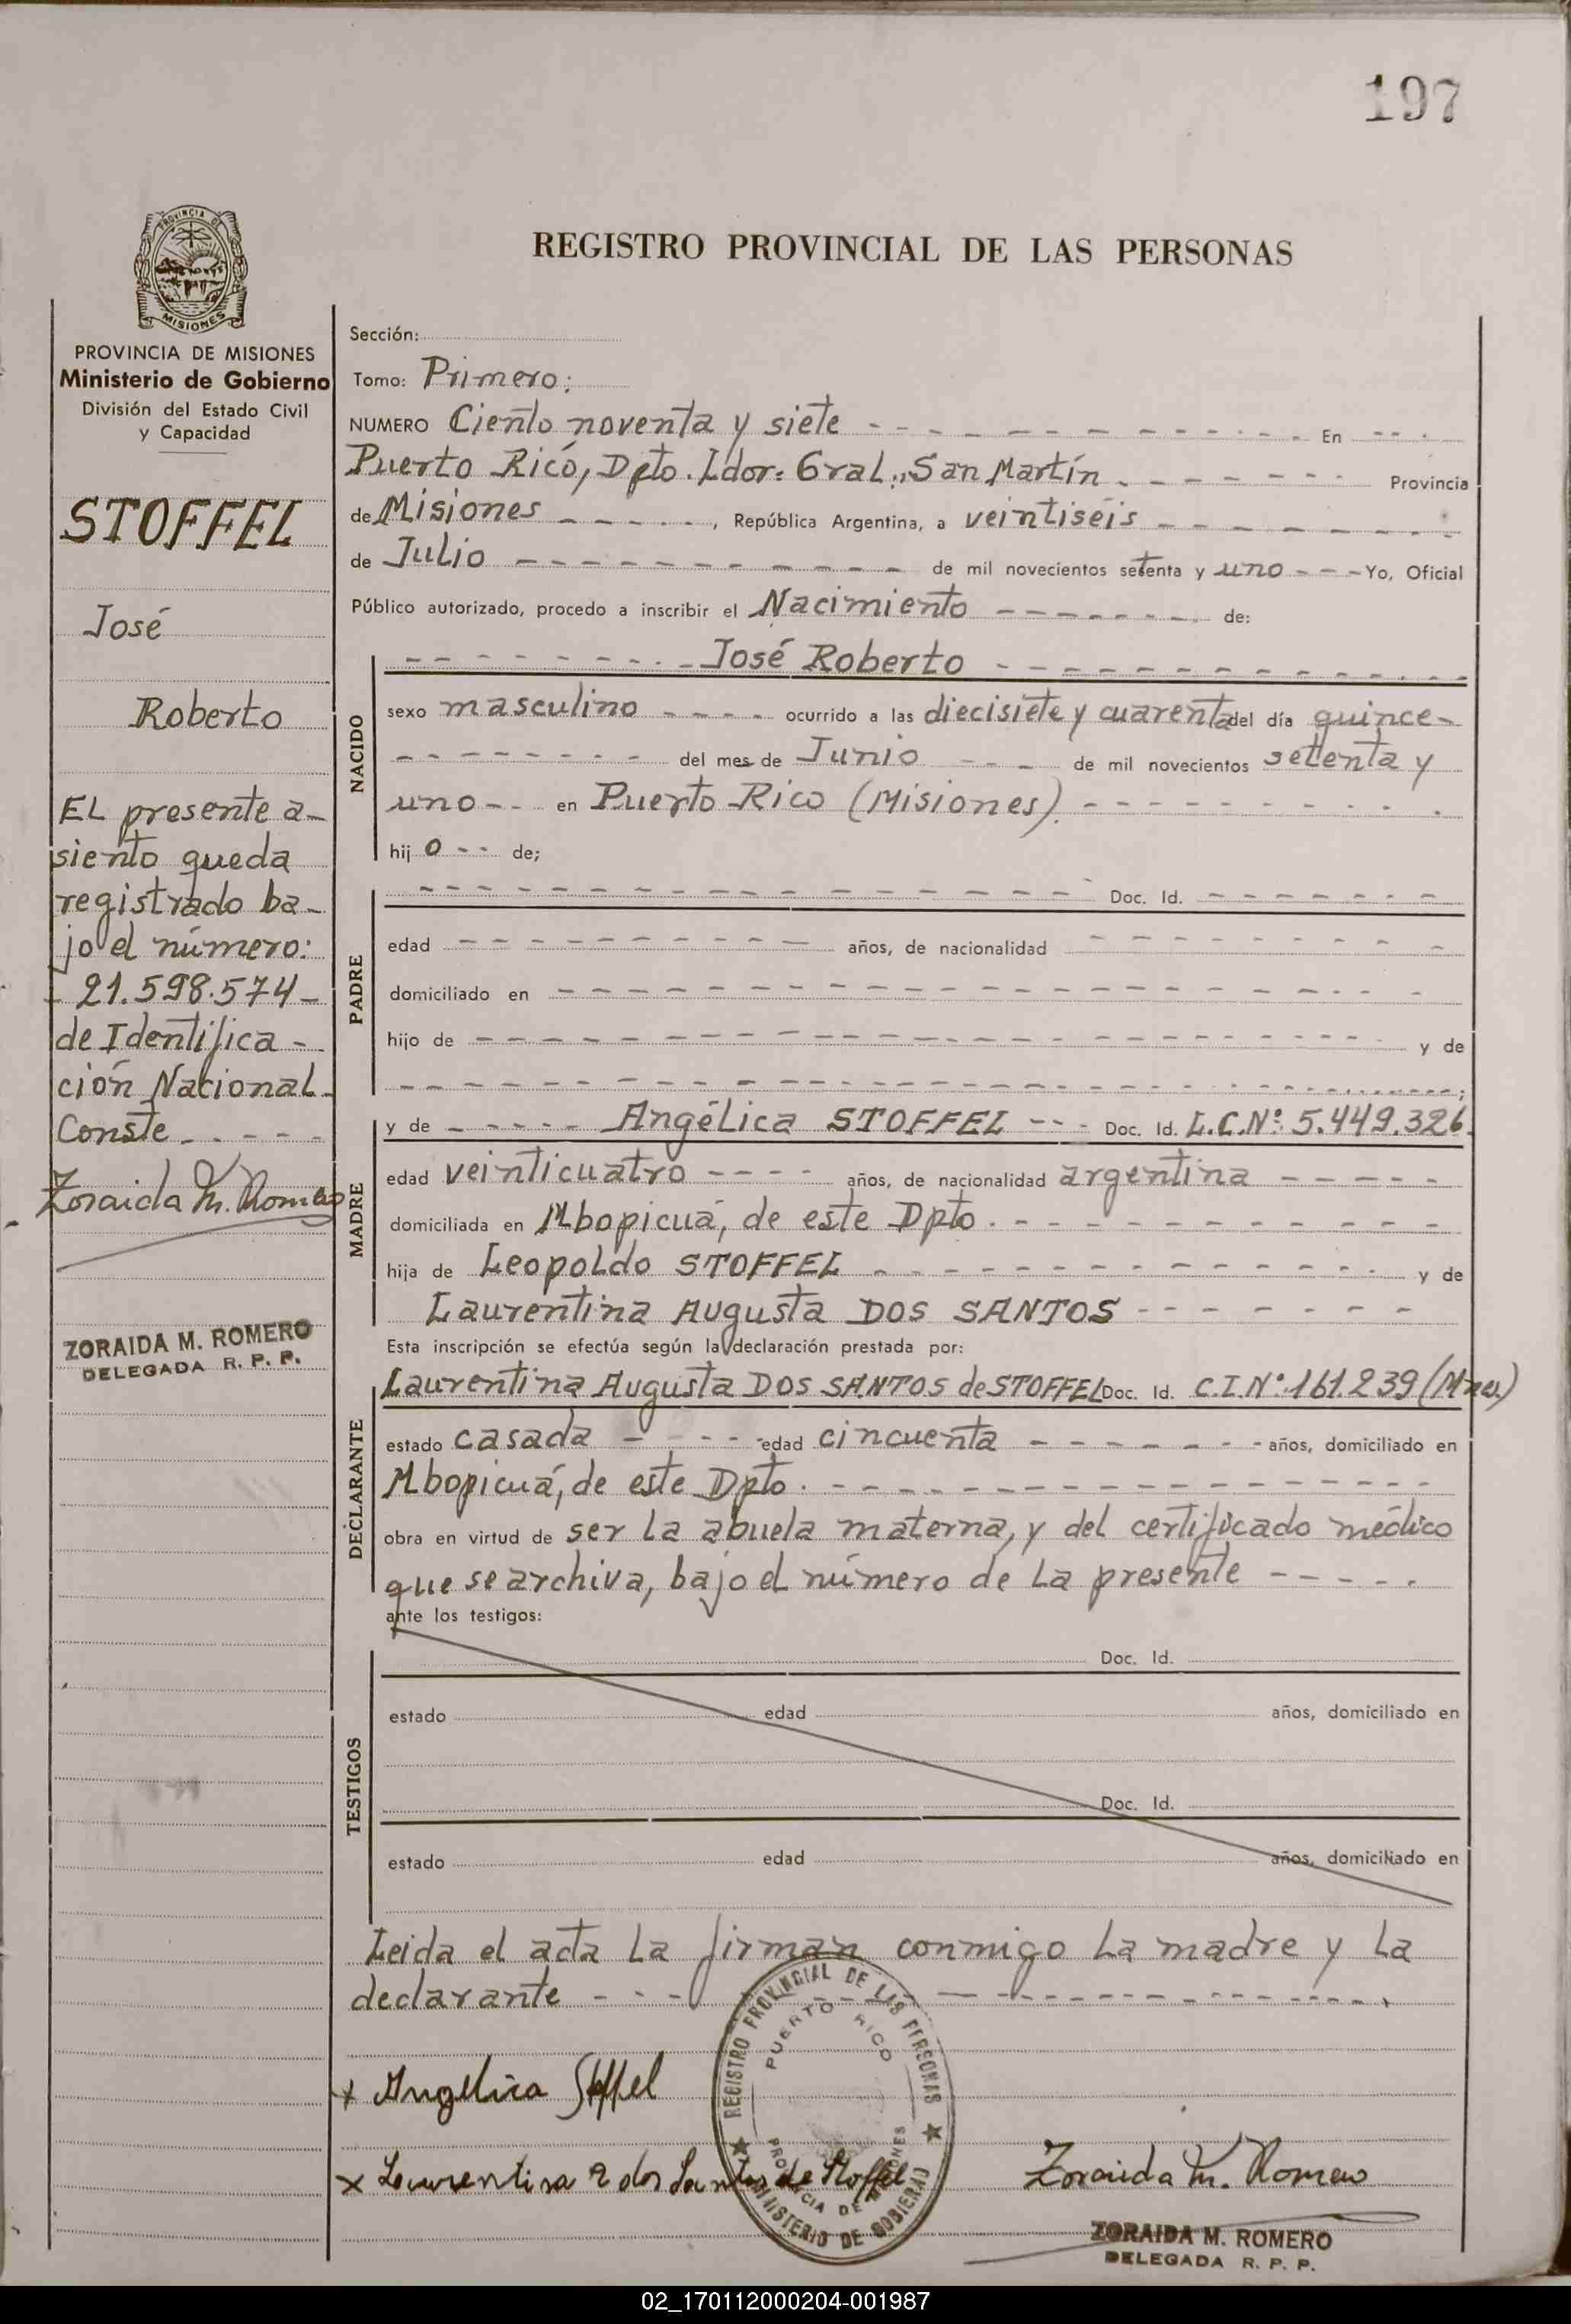 197
REGISTRO PROVINCIAL DE LAS PERSONAS
PROVINCIA DE MISIONES
Ministerio de Gobierno
División del Estado Civil
y Capacidad
STOFFEL
José
Roberto
EL presente a-
siento queda
registrado ba-
jo el número:
- 21.598.574 -
de Identifica -
ción Nacional-
Conste - - - - -
Zoraida M. Romero
ZORAIDA M. ROMERO
DELEGADA R. P. P.
Sección:
Tomo: Primero:
NUMERO Ciento noventa y siete - - - - - - - - - - - En - - - -
Puerto Rico, Dpto. Ldor: Gral: San Martín - - - - - - - - Provincia
de Misiones - - - - - -, República Argentina, a veintiseis - - - - - - - -
de Julio - - - - - - - - - - - - de mil novecientos setenta y uno - - - Yo, Oficial
Público autorizado, procedo a inscribir el Nacimiento - - - - - - - - de:
NACIDO
- - - - - - - - - José Roberto - - - - - - - - - - - -
sexo masculino - - - - ocurrido a las diecisiete y cuarenta del día quince-
- - - - - - - - - del mes de Junio - - - de mil novecientos setenta y
uno - - en Puerto Rico (Misiones). - - - - - - - - - -
hij o - - de;
PADRE
- - - - - - - - - - - - - - - - - - - - Doc. Id. - - - - - - - -
edad - - - - - - - - - - años, de nacionalidad - - - - - - - - -
domiciliado en - - - - - - - - - - - - - - - - - - - - - - -
hijo de - - - - - - - - - - - - - - - - - - - - - - - - y de
- - - - - - - - - - - - - - - - - - - - - - - - - - - - - ;
MADRE
y de - - - - - Angélica STOFFEL - - - Doc. Id. L.C.Nº: 5.449.326.
edad veinticuatro - - - - años, de nacionalidad argentina - - - - -
domiciliada en Mbopicuá, de este Dpto. - - - - - - - - - - - -
hija de Leopoldo STOFFEL - - - - - - - - - - - - - y de
Laurentina Augusta DOS SANTOS - - - - - - - -
Esta inscripción se efectúa según la declaración prestada por:
DECLARANTE
Laurentina Augusta DOS SANTOS de STOFFEL Doc. Id. C.I.Nº.161.239 (Mnes.)
estado casada - - - - edad cincuenta - - - - - - - - años, domiciliado en
Mbopicuá, de este Dpto. - - - - - - - - - - - - - - - - -
obra en virtud de ser la abuela materna, y del certificado médico
que se archiva, bajo el número de la presente - - - - -
ante los testigos:
TESTIGOS
Doc. Id.
estado edad años, domiciliado en
Doc. Id.
estado edad años, domiciliado en
Leida el acta la firman conmigo la madre y la
declarante - - - - - - - - - - - - - - - - - - - -
x Angelica Stoffel
x Laurentina A dos Santos de Stoffel
REGISTRO PROVINCIAL DE LAS PERSONAS
PUERTO RICO
PROVINCIA DE MISIONES
★ MINISTERIO DE GOBIERNO ★
Zoraida M. Romero
ZORAIDA M. ROMERO
DELEGADA R. P. P.
02_170112000204-001987